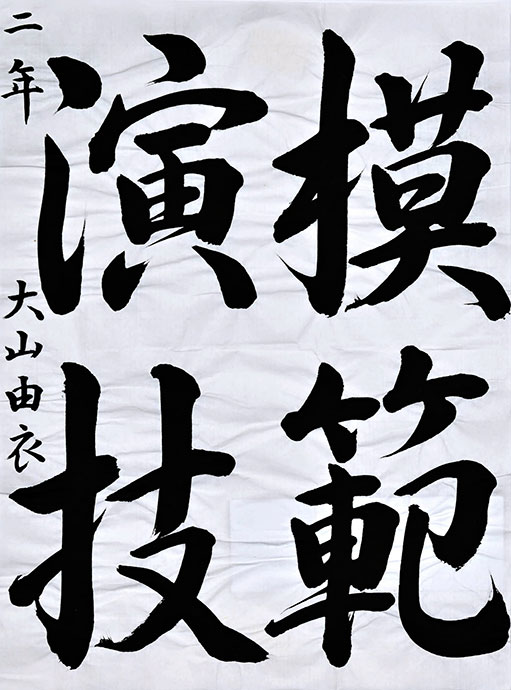 模範
演技
二年 大山由衣